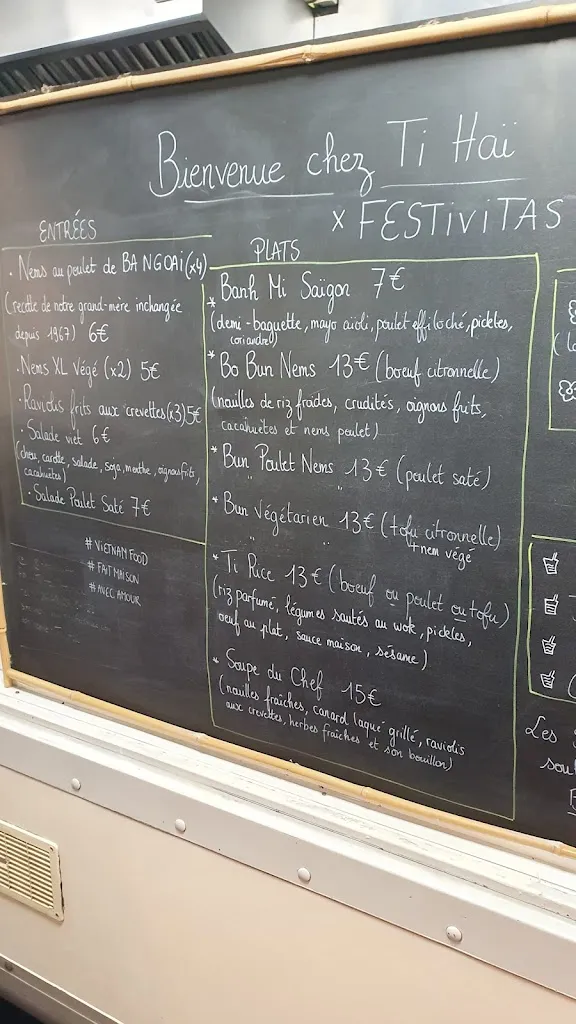 Bienvenue chez Ti Haï
x FESTIVITAS
ENTRÉES
• Nems au poulet de BA NGOAI (x4)
(recette de notre grand-mère inchangée
depuis 1967) 6€
• Nems XL Végé (x2) 5€
• Raviolis frits aux crevettes (x3) 5€
• Salade viet 6€
(chou, carotte, salade, soja, menthe, oignons frits,
cacahuètes)
• Salade Poulet Saté 7€
# VIETNAM FOOD
# FAIT MAISON
# AVEC AMOUR
PLATS
* Banh Mi Saïgon 7€
(demi-baguette, mayo aïoli, poulet effiloché, pickles,
coriandre)
* Bo Bun Nems 13€ (boeuf citronnelle)
(nouilles de riz froides, crudités, oignons frits,
cacahuètes et nems poulet)
* Bun Poulet Nems 13€ (poulet saté)
" "
* Bun Végétarien 13€ (tofu citronnelle)
" " + nem végé
* Ti Rice 13€ (boeuf ou poulet ou tofu)
(riz parfumé, légumes sautés au wok, pickles,
oeuf au plat, sauce maison, sésame)
* Soupe du Chef 15€
(nouilles fraîches, canard laqué grillé, raviolis
aux crevettes, herbes fraîches et son bouillon)
Les